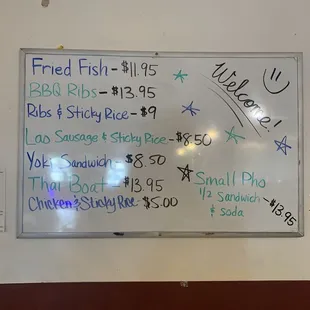 Fried Fish - $11.95
BBQ Ribs - $13.95
Ribs & Sticky Rice - $9
Lao Sausage & Sticky Rice - $8.50
Yoki Sandwich - $8.50
Thai Boat - $13.95
Chicken & Sticky Rice - $5.00
Welcome!
Small Pho
1/2 Sandwich - $13.95
& soda